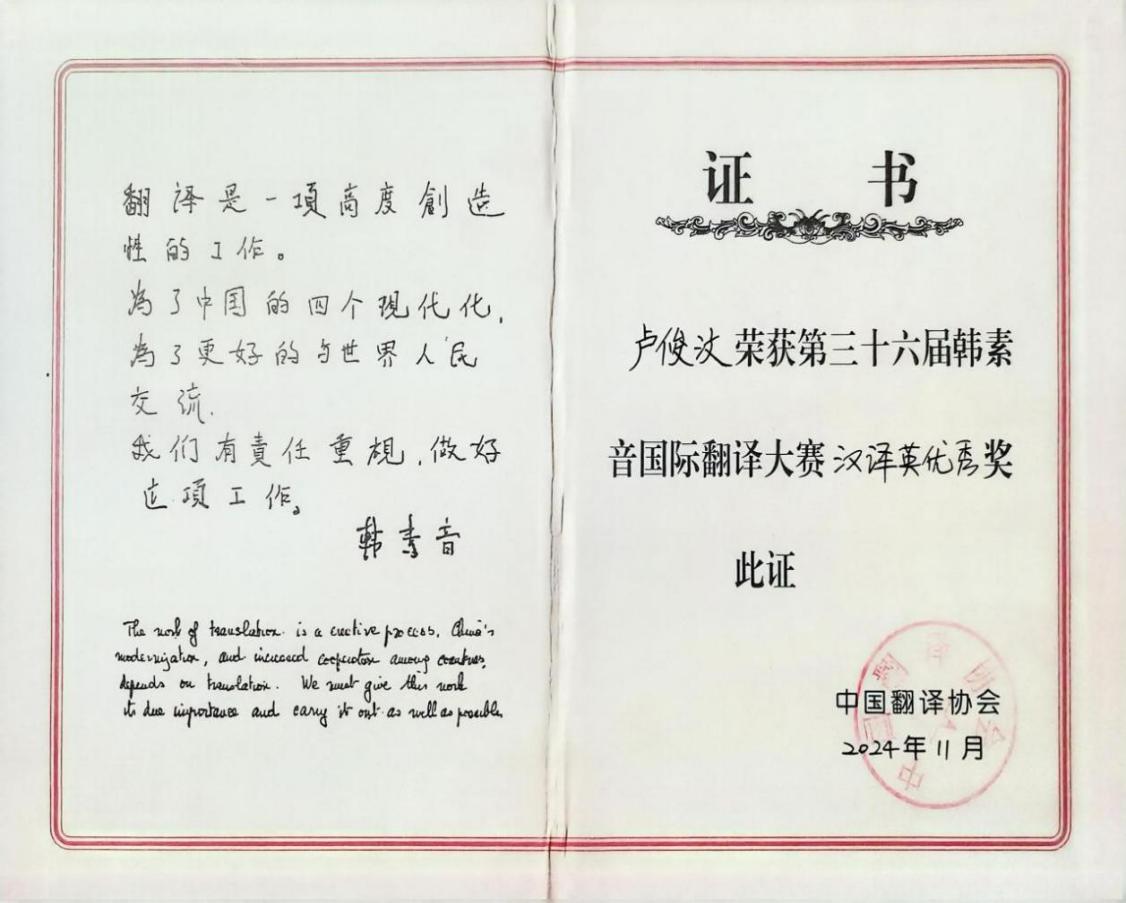 翻译是一項高度創造
性的工作。
為了中国的四个现代化,
為了更好的与世界人民
交流.
我们有責任重視,做好
这項工作。
韩素音
The work of translation is a creative process. China's
modernization, and increased cooperation among countries,
depends on translation. We must give this work
its due importance and carry it out as well as possible
证 书
卢俊汶荣获第三十六届韩素
音国际翻译大赛汉译英优秀奖
此证
中国翻译协会
2024年11月